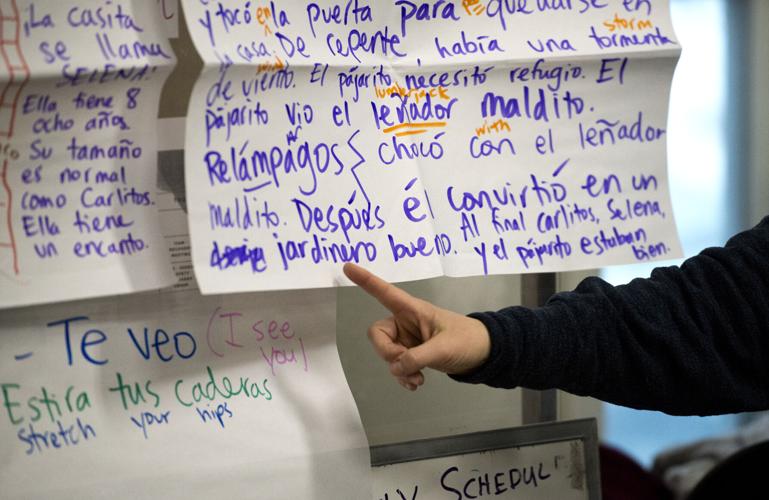 ¡La casita
se llama
SELENA!
Ella tiene 8
ocho años
Su tamaño
es normal
como Carlitos.
Ella tiene
un encanto.
y tocó en la puerta para quedarse en
la casa. De repente, había una tormenta
storm
de viento. El pájarito necesitó refugio. El
wind
pájarito vio el leñador maldito.
lumberjack
Relámpagos chocó con el leñador
with
maldito. Después él convirtió en un
jardinero bueno. Al final carlitos, Selena,
y el pájarito estaban
bien.
- Te veo (I see
you)
Estira tus caderas
stretch your hips
SCHEDUL